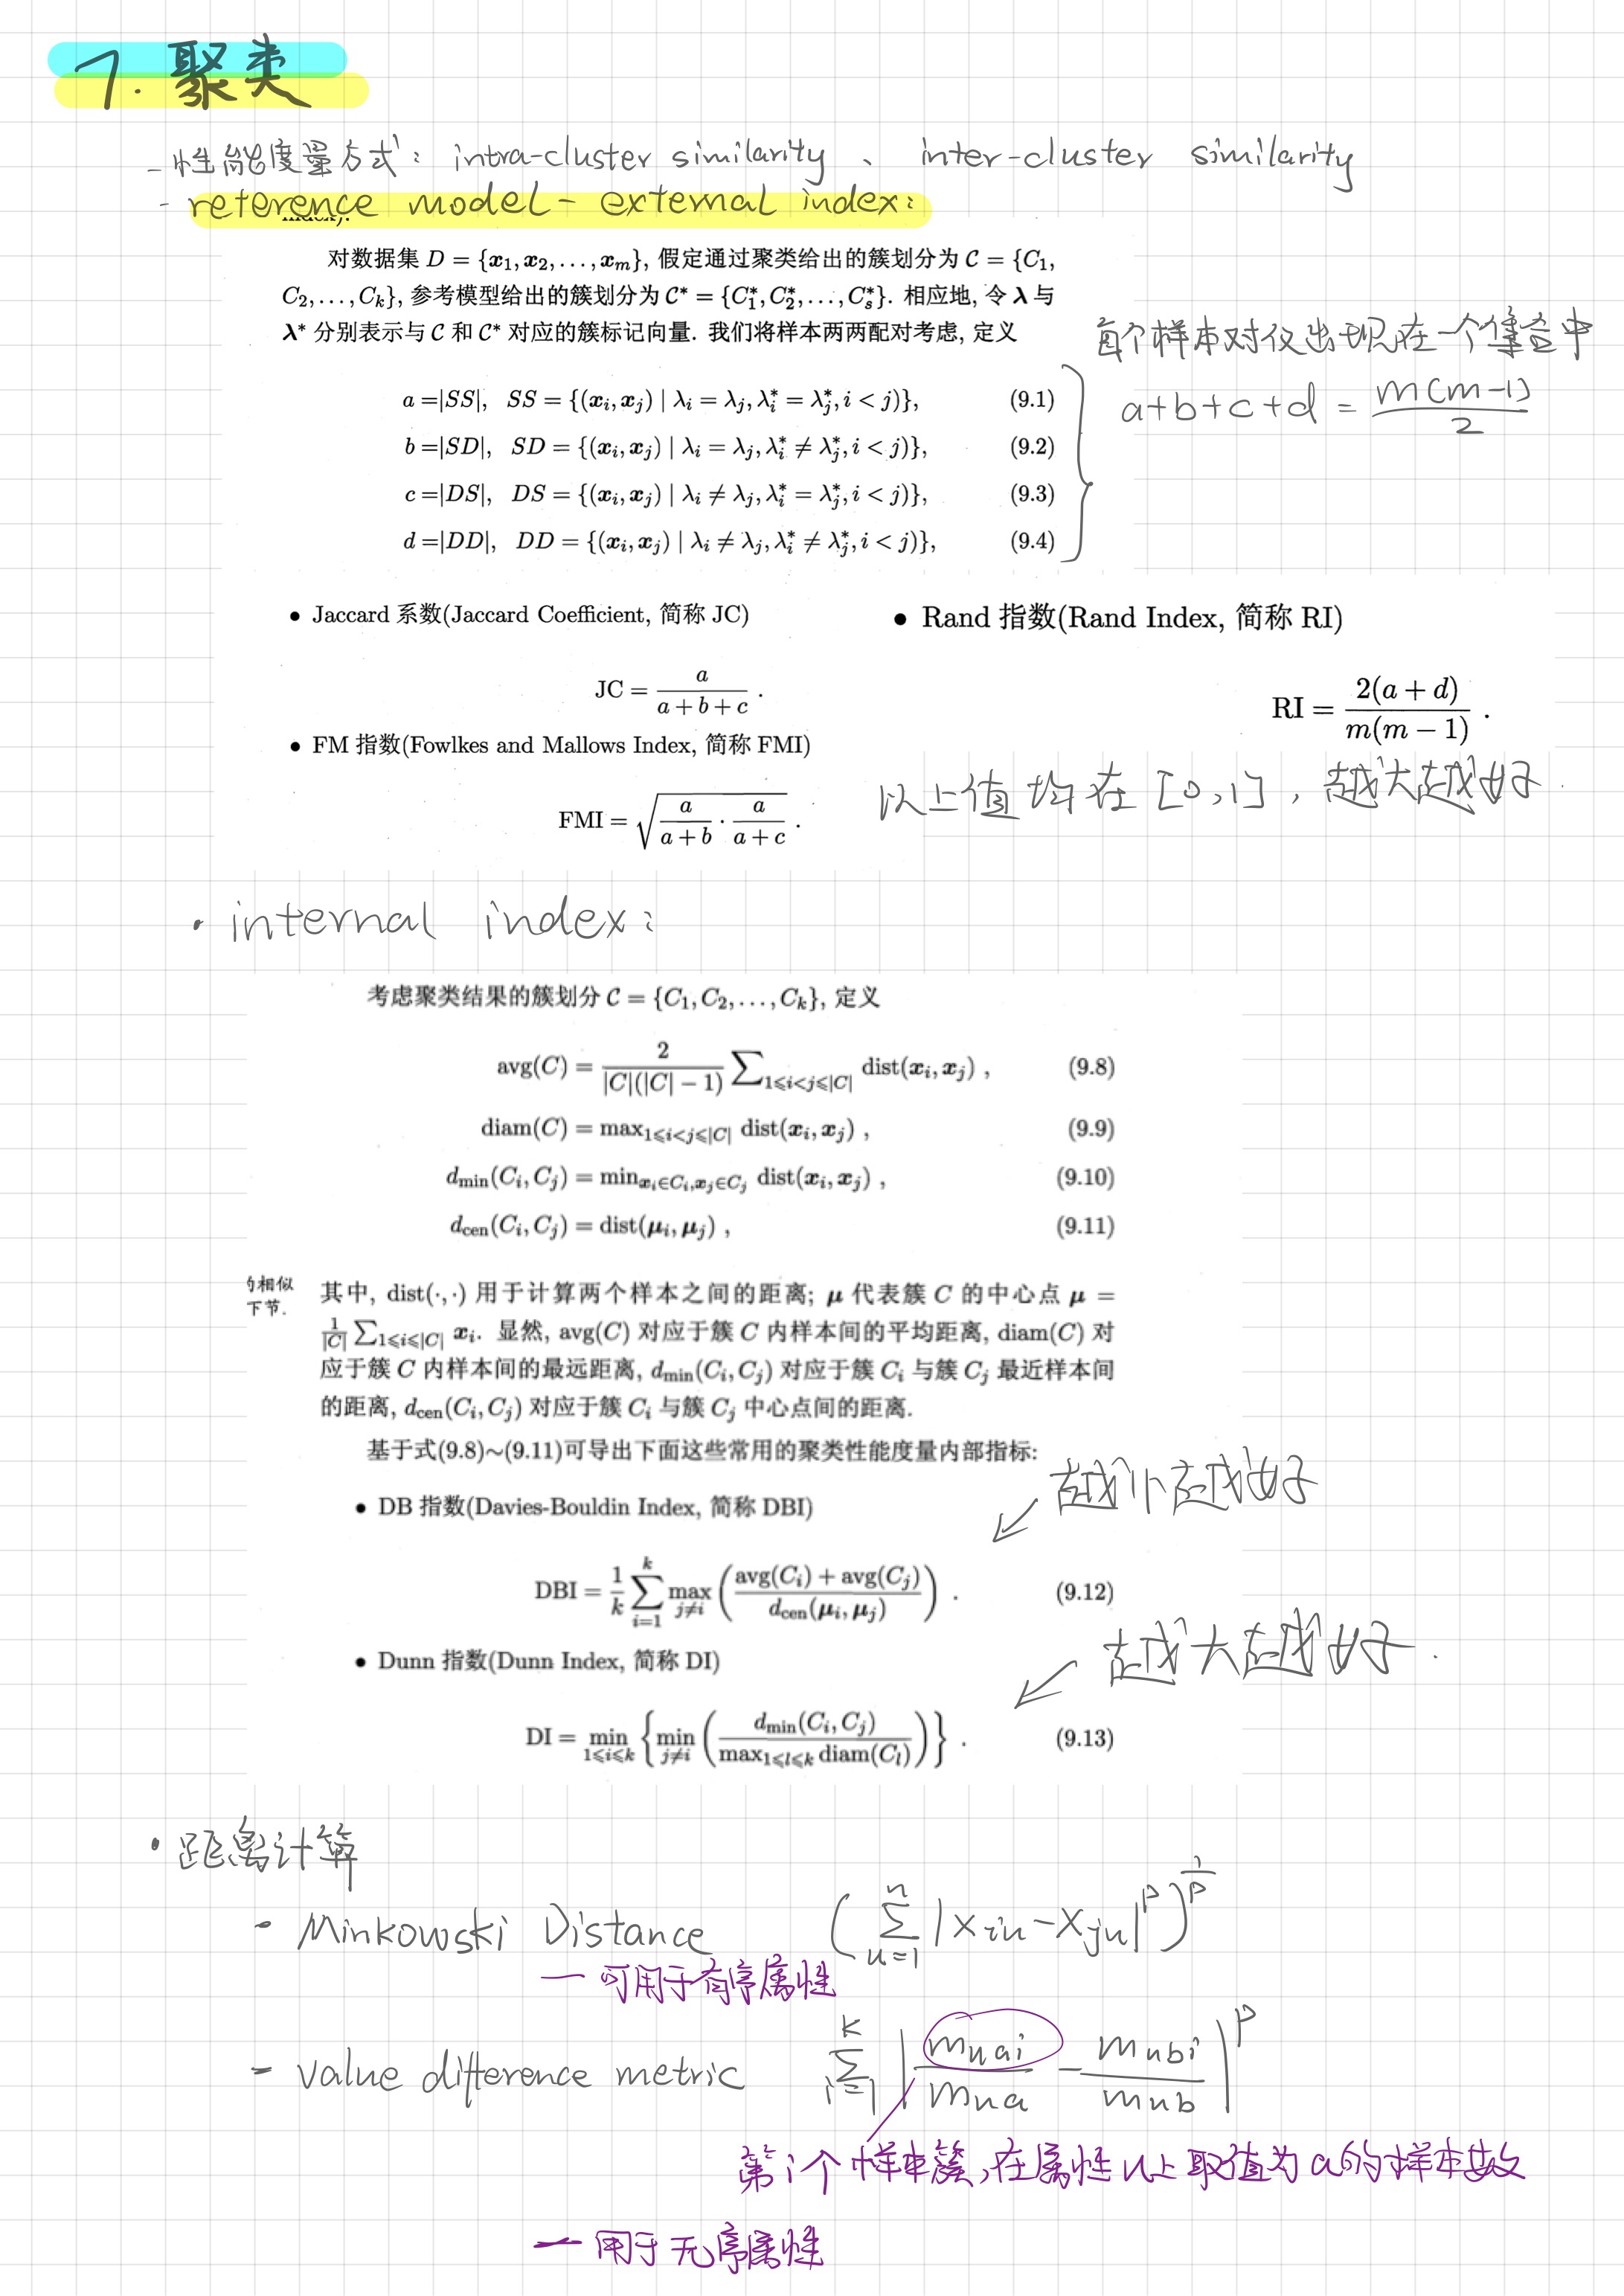 7. 聚类
- 性能度量方式: intra-cluster similarity、inter-cluster similarity
- reference model - external index:
对数据集 D = {x₁, x₂, ..., xₘ}, 假定通过聚类给出的簇划分为 C = {C₁,
C₂, ..., Cₖ}, 参考模型给出的簇划分为 C* = {C₁*, C₂*, ..., Cₛ*}. 相应地, 令 λ 与
λ* 分别表示与 C 和 C* 对应的簇标记向量. 我们将样本两两配对考虑, 定义
每个样本对仅出现在一个集合中
a+b+c+d = m(m-1)/2
a =|SS|, SS = {(xᵢ, xⱼ) | λᵢ = λⱼ, λᵢ* = λⱼ*, i < j)}, (9.1)
b =|SD|, SD = {(xᵢ, xⱼ) | λᵢ = λⱼ, λᵢ* ≠ λⱼ*, i < j)}, (9.2)
c =|DS|, DS = {(xᵢ, xⱼ) | λᵢ ≠ λⱼ, λᵢ* = λⱼ*, i < j)}, (9.3)
d =|DD|, DD = {(xᵢ, xⱼ) | λᵢ ≠ λⱼ, λᵢ* ≠ λⱼ*, i < j)}, (9.4)
• Jaccard 系数(Jaccard Coefficient, 简称 JC)
JC = a/(a + b + c) .
• FM 指数(Fowlkes and Mallows Index, 简称 FMI)
FMI = √(a/(a + b) · a/(a + c)) .
• Rand 指数(Rand Index, 简称 RI)
RI = 2(a + d)/(m(m − 1)) .
以上值均在 [0,1], 越大越好.
• internal index:
考虑聚类结果的簇划分 C = {C₁, C₂, ..., Cₖ}, 定义
avg(C) = 2/(|C|(|C| − 1)) ∑1⩽i<j⩽|C| dist(xᵢ, xⱼ) , (9.8)
diam(C) = max1⩽i<j⩽|C| dist(xᵢ, xⱼ) , (9.9)
dmin(Cᵢ, Cⱼ) = minxᵢ∈Cᵢ,xⱼ∈Cⱼ dist(xᵢ, xⱼ) , (9.10)
dcen(Cᵢ, Cⱼ) = dist(μᵢ, μⱼ) , (9.11)
的相似
下节.
其中, dist(·,·) 用于计算两个样本之间的距离; μ 代表簇 C 的中心点 μ =
1/|C| ∑1⩽i⩽|C| xᵢ. 显然, avg(C) 对应于簇 C 内样本间的平均距离, diam(C) 对
应于簇 C 内样本间的最远距离, dmin(Cᵢ, Cⱼ) 对应于簇 Cᵢ 与簇 Cⱼ 最近样本间
的距离, dcen(Cᵢ, Cⱼ) 对应于簇 Cᵢ 与簇 Cⱼ 中心点间的距离.
基于式(9.8)~(9.11)可导出下面这些常用的聚类性能度量内部指标:
• DB 指数(Davies-Bouldin Index, 简称 DBI)
越小越好
DBI = 1/k ∑ᵢ₌₁ᵏ max j≠i ((avg(Cᵢ) + avg(Cⱼ))/dcen(μᵢ, μⱼ)) . (9.12)
• Dunn 指数(Dunn Index, 简称 DI)
越大越好.
DI = min 1⩽i⩽k {min j≠i (dmin(Cᵢ, Cⱼ)/max1⩽l⩽k diam(Cₗ))} . (9.13)
• 距离计算
- Minkowski Distance (∑ᵤ₌₁ⁿ |xiu - xju|^p)^(1/p)
— 可用于有序属性
- value difference metric ∑ᵢ₌₁ᵏ |mu,a,i/mu,a - mu,b,i/mu,b|^p
第i个样本簇,在属性u上取值为a的样本数
— 用于无序属性